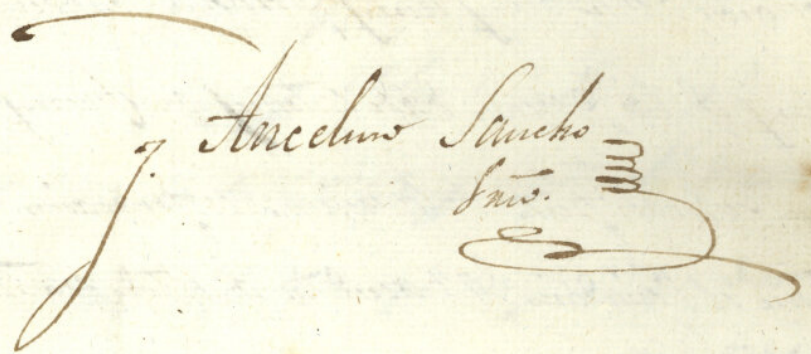 J. Ancelmo Sancho
Srio.